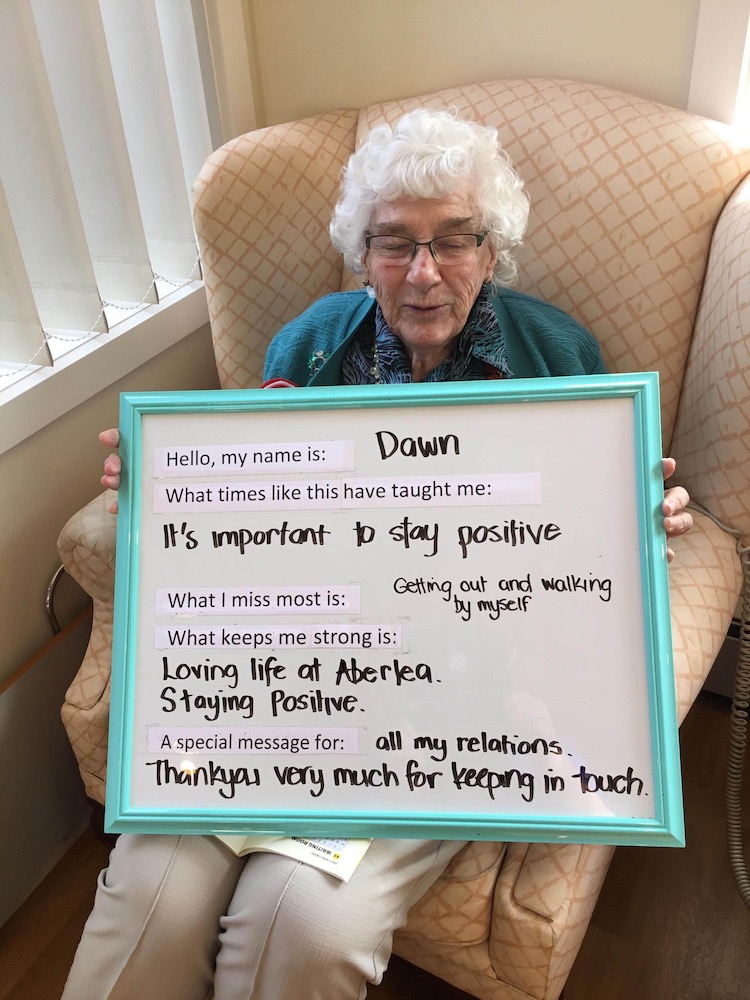 Hello, my name is: Dawn
What times like this have taught me:
It's important to stay positive
What I miss most is: Getting out and walking
by myself
What keeps me strong is:
Loving life at Aberlea.
Staying Positive.
A special message for: all my relations.
Thankyou very much for keeping in touch.
WAITING ROOM